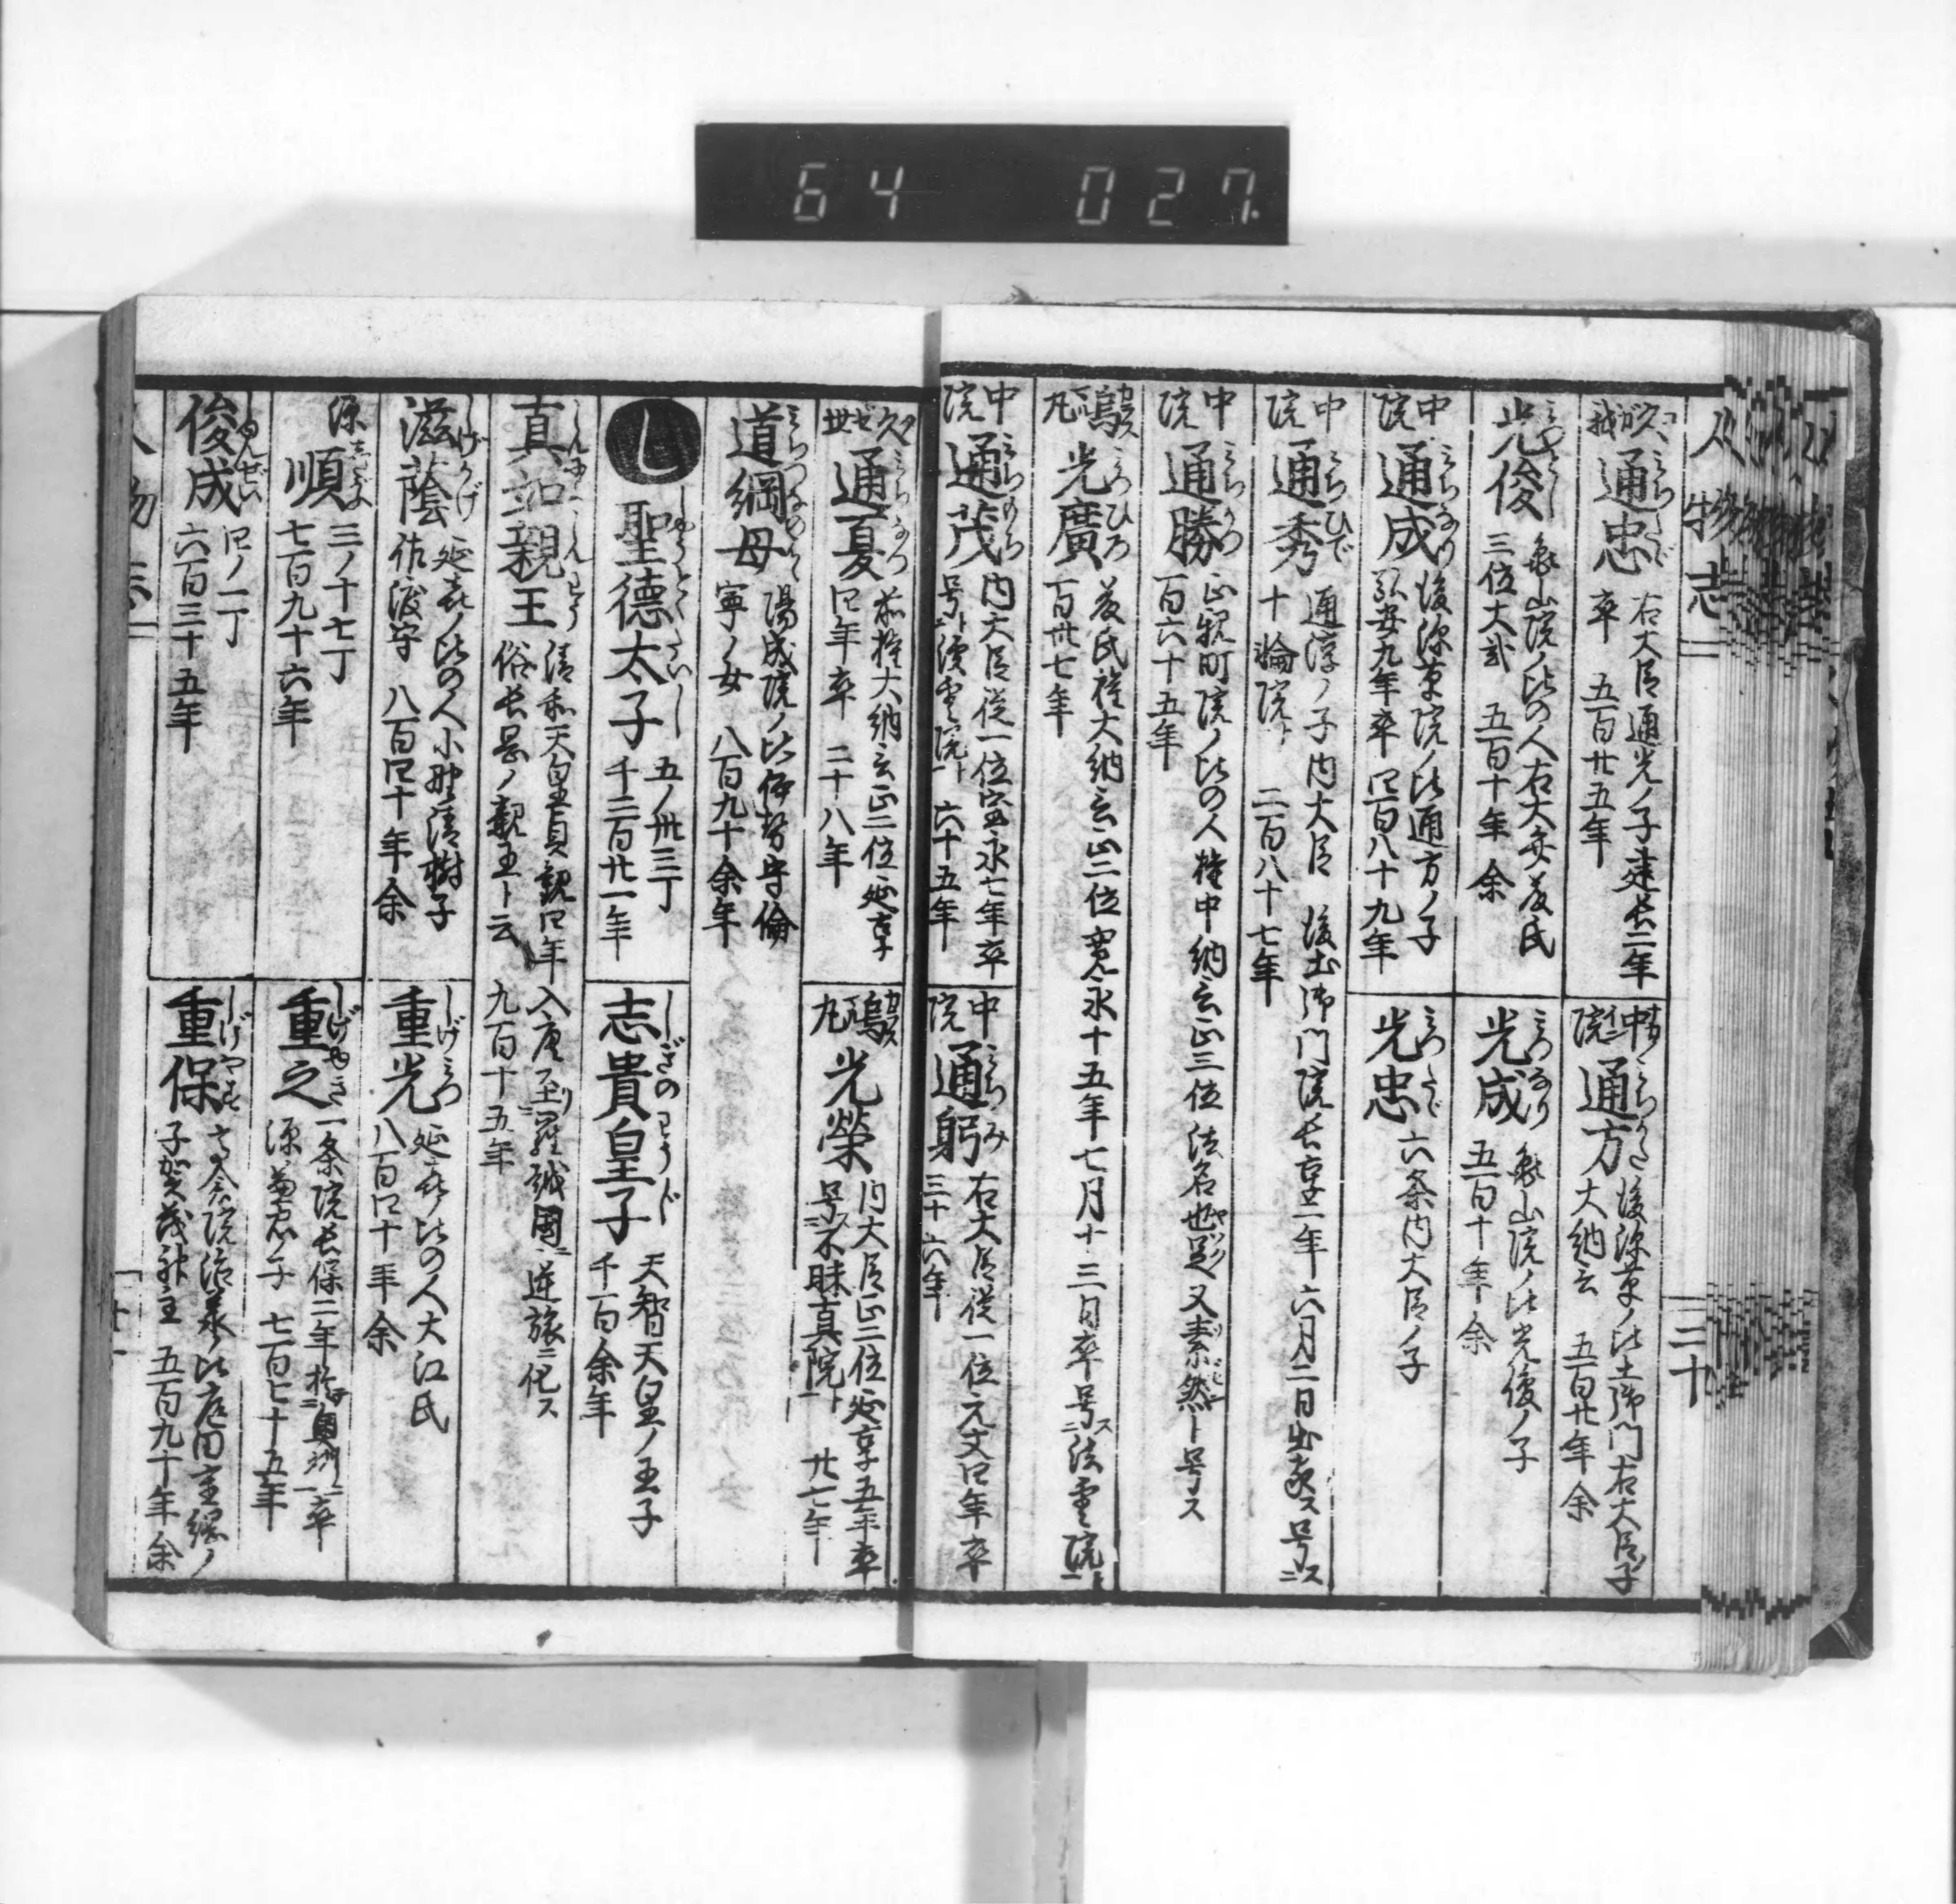 64 027
人物志 三十
久我 通忠 右大臣通光ノ子建長二年
卒 五百廿五年
中院 通方 後深草ノ比土御門右大臣ノ子
大納言 五百廿年余
光俊 亀山院ノ比の人右大弁藤氏
三位大貳 五百十年余
光成 亀山院ノ比光俊ノ子
五百十年余
中院 通成 後深草院ノ比通方ノ子
弘安九年卒 四百八十九年
光忠 六条内大臣ノ子
中院 通秀 通淳ノ子内大臣 後土御門院長享二年六月二日出家ス号ス
十輪院ト 二百八十七年
中院 通勝 正親町院ノ比の人権中納言正三位 法名也足又素然ト号ス
百六十五年
烏丸 光廣 藤氏権大納言正二位寛永十五年七月十三日卒号ス法雲院ト
百卅七年
中院 通茂 内大臣従一位宝永七年卒
号ス渓雲院ト 六十五年
中院 通躬 右大臣従一位元文四年卒
三十六年
久世 通夏 前権大納言正二位延享
四年卒 二十八年
烏丸 光榮 内大臣正二位延享五年卒
号ス不昧真院ト 廿七年
道綱母 陽成院ノ比伊勢守倫
寧ノ女 八百九十余年
し 聖德太子 五ノ卅三丁
千二百廿一年
志貴皇子 天智天皇ノ王子
千百余年
真如親王 清和天皇貞観四年入唐至リ羅越國ニ逆旅ニ化ス
俗長岡ノ親王ト云 九百十五年
滋蔭 延喜ノ比の人小野清樹子
佐渡守 八百四十年余
重光 延喜ノ比の人大江氏
八百四十年余
源 順 三ノ十七丁
七百九十六年
重之 一条院長保二年於奥州ニ卒
源兼忠ノ子 七百七十五年
俊成 四ノ一丁
六百三十五年
重保 高倉院治承ノ比産田重継ノ
子賀茂神主 五百九十年余
人物志